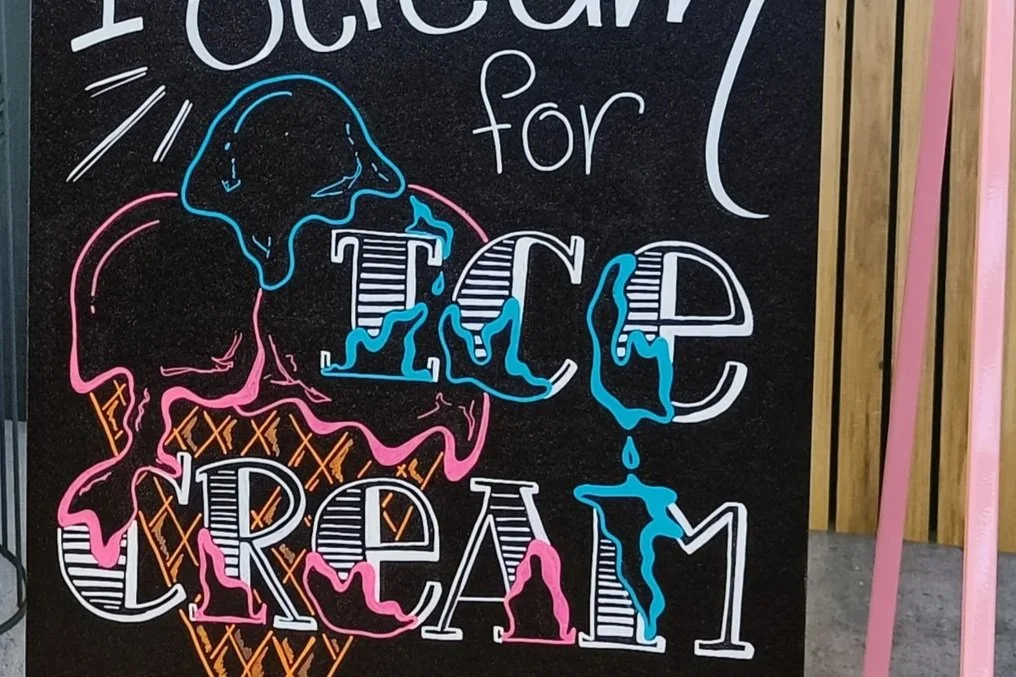 I scream
for
ICe
CReAM